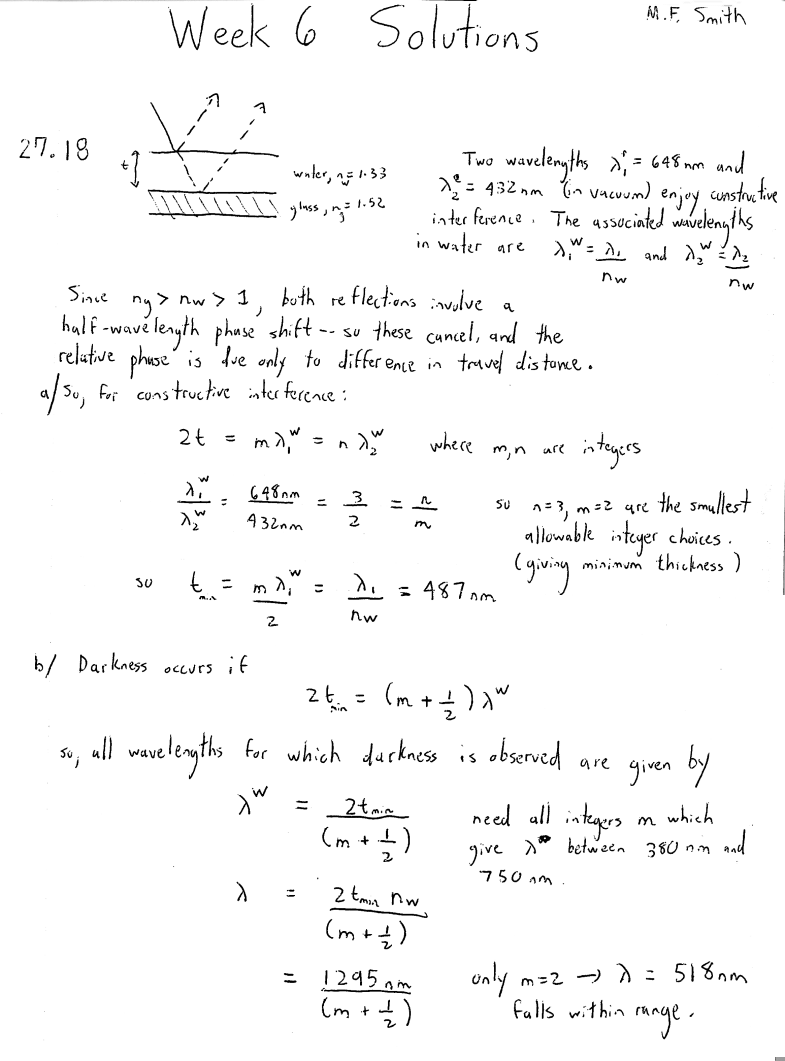 Week 6 Solutions
M.F. Smith
27.18
t
water, n_w = 1.33
glass, n_g = 1.52
Two wavelengths λ₁ = 648 nm and
λ₂ = 432 nm (in vacuum) enjoy constructive
interference. The associated wavelengths
in water are λ₁ᵂ = λ₁/n_w and λ₂ᵂ = λ₂/n_w
Since n_g > n_w > 1, both reflections involve a
half-wavelength phase shift -- so these cancel, and the
relative phase is due only to difference in travel distance.
a/ So, for constructive interference:
2t = mλ₁ᵂ = nλ₂ᵂ where m,n are integers
λ₁ᵂ/λ₂ᵂ = 648nm/432nm = 3/2 = n/m so n=3, m=2 are the smallest
allowable integer choices.
(giving minimum thickness)
so t_min = mλ₁ᵂ/2 = λ₁/n_w = 487 nm
b/ Darkness occurs if
2t_min = (m + 1/2) λᵂ
so, all wavelengths for which darkness is observed are given by
λᵂ = 2t_min/(m + 1/2) need all integers m which
give λ between 380 nm and
750 nm.
λ = 2t_min n_w/(m + 1/2)
= 1295 nm/(m + 1/2) only m=2 → λ = 518nm
falls within range.